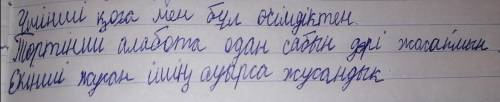 Үшінші қоға мен бұл өсімдіктен
Төртінші алабота одан сабын дәрі жасаймын
Екінші жусан ішің ауырса жусандық